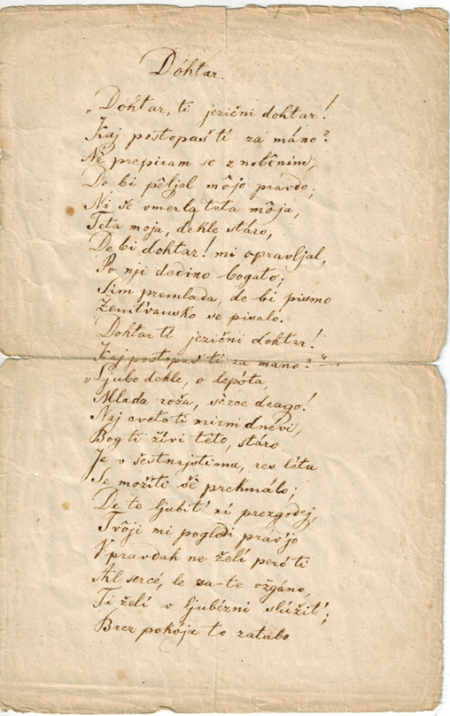 Dóhtar.
„Dóhtar, ti jezični dohtar!
Kaj postopaš ti za máno?
Ne prepiram se z nobènim,
De bi pêljal môjo pravdo;
Ni še vmerla teta môja,
Teta moja, dekle stáro,
De bi dohtar! mi opravljal,
Po nji dedino bogato;
Sim premlada, de bi pismo
Ženitvansko se pisalo.
Dohtar ti jezični dohtar!
Kaj postopaš ti za máno?"
„Ljubo dekle, o lepóta,
Mlada roža, sérce drago!
Naj cveto ti mirni dnevi,
Bog ti živi této, stáro
Je v šestnajstimu, res létu
Se možiti šê prehmálo;
De te ljubit' ní prezgódej,
Tvôji mi pogledi prav'jo
V pravdah ne želí peró ti
Al sercé, le za-te vžgáno,
Ti želí v ljubézni slúžit';
Brez pokója to zatabo